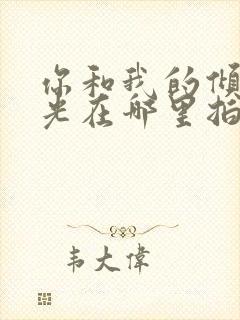 你和我的倾
光在哪里拍
韦大偉